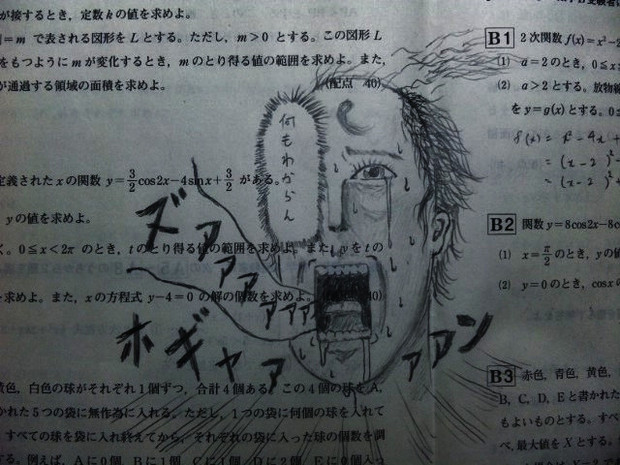 が接するとき，定数kの値を求めよ。
=m で表される図形をLとする。ただし，m>0とする。この図形L
をもつようにmが変化するとき，mのとり得る値の範囲を求めよ。また，
が通過する領域の面積を求めよ。
(配点 40)
何もわからん
定義されたxの関数 y=3/2cos2x-4sinx+3/2 がある。
yの値を求めよ。
く。0≦x<2π のとき，tのとり得る値の範囲を求めよ。また，yをtの
を求めよ。また，xの方程式 y-4=0 の解の個数を求めよ。
40)
ズァアァァアアアア
ホギャアァァアン
黄色，白色の球がそれぞれ1個ずつ，合計4個ある。この4個の球をA，
かれた5つの袋に無作為に入れる。ただし，1つの袋に何個の球を入れて
すべての球を袋に入れ終えてから，それぞれの袋に入った球の個数を調
る。例えば，Aに0個，Bに1個，Cに1個，Dに2個，Eに0個入っ
B1 2次関数 f(x)=x²-2
(1) a=2のとき，0≦x≦
(2) a>2とする。放物線
をy=g(x)とする。0≦
f(x)= x²-4x+
= (x-2)²
= (x-2)²
B2 関数 y=8cos2x-8c
(1) x=π/2のとき，yの値
(2) y=0のとき，cosx
B3 赤色，青色，黄色，
B，C，D，Eと書かれた
もよいものとする。すべ
べ，最大値をXとする。